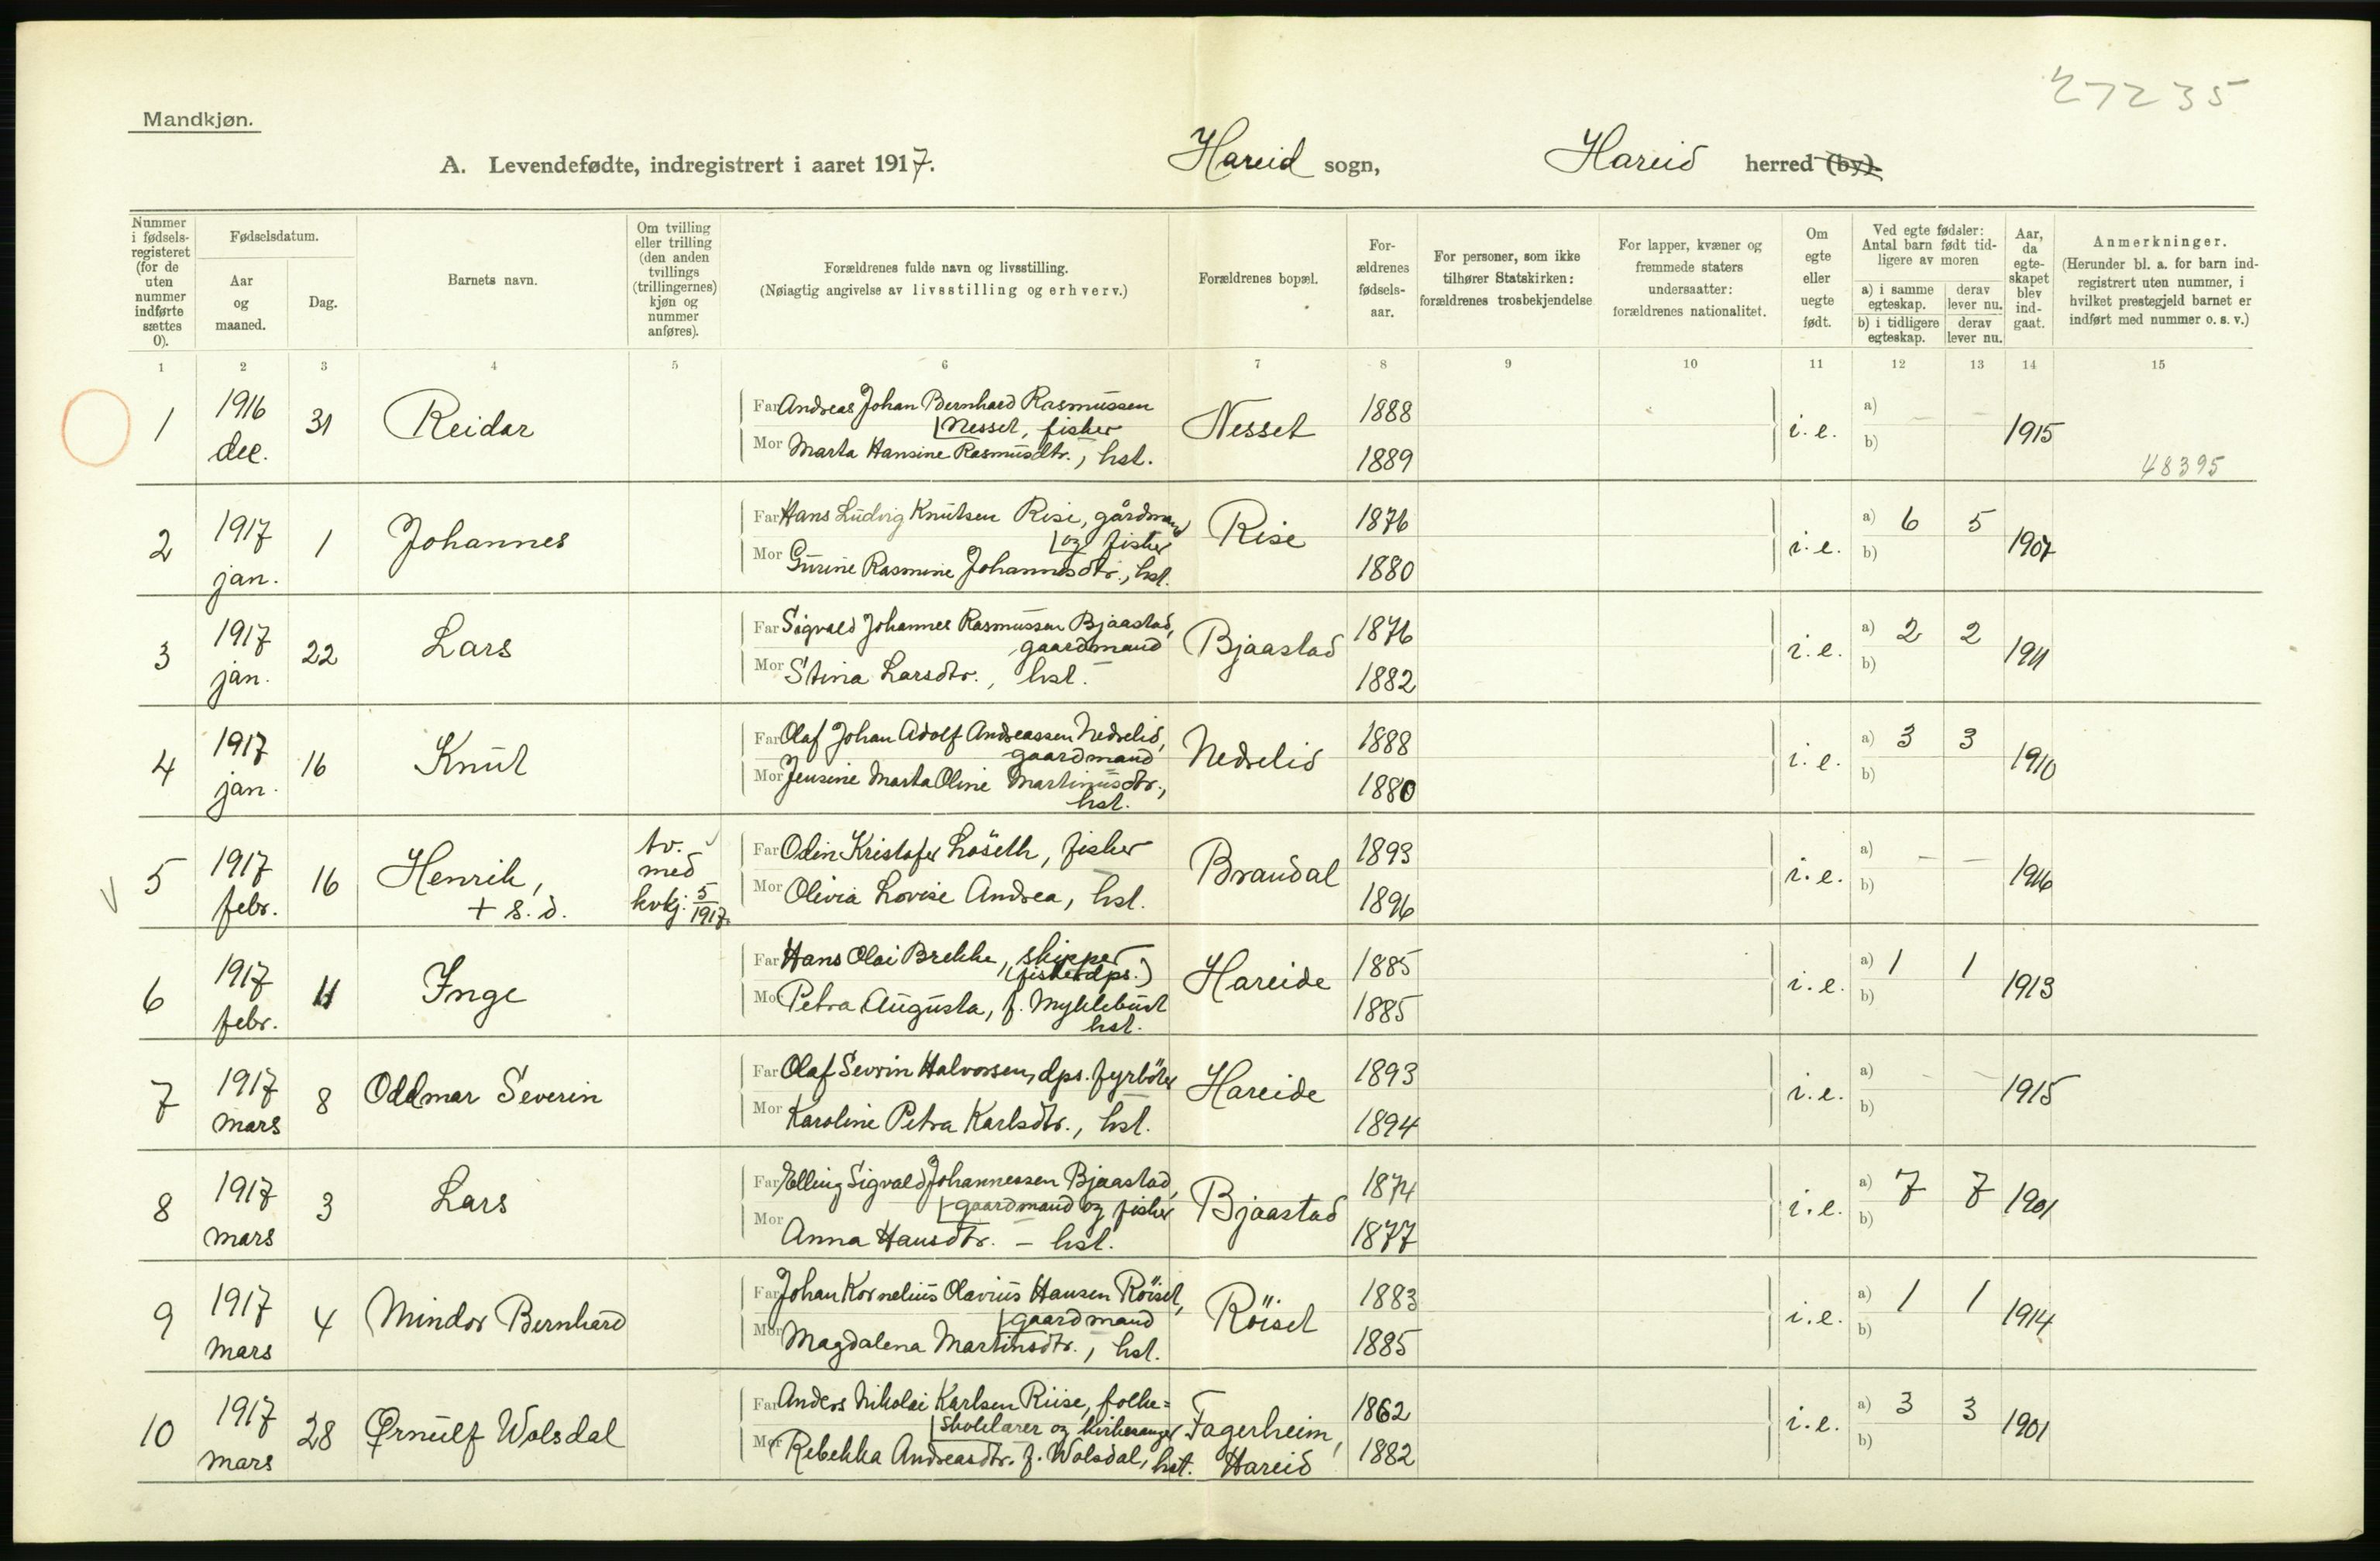 27235
Mandkjøn.
A. Levendefødte, indregistrert i aaret 1917. Hareid sogn, Hareid herred (by).
Nummer i fødsels-registeret (for de uten nummer indførte sættes 0).
Fødselsdatum.
Aar og maaned.
Dag.
Barnets navn.
Om tvilling eller trilling (den anden tvillings (trillingernes) kjøn og nummer anføres).
Forældrenes fulde navn og livsstilling.
(Nøiagtig angivelse av livsstilling og erhverv.)
Forældrenes bopæl.
For-ældrenes fødsels-aar.
For personer, som ikke tilhører Statskirken: forældrenes trosbekjendelse
For lapper, kvæner og fremmede staters undersaatter: forældrenes nationalitet.
Om egte eller uegte født.
Ved egte fødsler: Antal barn født tid-ligere av moren
a) i samme egteskap. derav lever nu.
b) i tidligere egteskap. derav lever nu.
Aar, da egte-skapet blev ind-gaat.
Anmerkninger.
(Herunder bl. a. for barn ind-registrert uten nummer, i hvilket prestegjeld barnet er indført med nummer o. s. v.)
1 2 3 4 5 6 7 8 9 10 11 12 13 14 15
1 1916 dec. 31 Reidar
Far Andreas Johan Bernhard Rasmussen
Nesset, fisker
Mor Marta Hansine Rasmusdtr., hst.
Nesset 1888 1889 i. e. a) — — b) 1915 48395
2 1917 jan. 1 Johannes
Far Hans Ludvig Knutsen Rise, gårdmand
og fisker
Mor Gurine Rasmine Johannesdtr., hst.
Rise 1876 1880 i. e. a) 6 5 b) 1907
3 1917 jan. 22 Lars
Far Sigvald Johannes Rasmussen Bjaastad,
gaardmand
Mor Stina Larsdtr., hst.
Bjaastad 1876 1882 i. e. a) 2 2 b) 1911
4 1917 jan. 16 Knut
Far Olaf Johan Adolf Andreassen Nedrelid,
gaardmand
Mor Jensine Marta Oline Martinusdtr.,
hst.
Nedrelid 1888 1880 i. e. a) 3 3 b) 1910
5 1917 febr. 16 Henrik,
+ s. d.
tv. med kvkj. 5/1917.
Far Odin Kristofer Löseth, fisker
Mor Olivia Lovise Andrea, hst.
Brandal 1893 1896 i. e. a) — — b) 1916
6 1917 febr. 11 Inge
Far Hans Olai Brekke, skipper
(fiskerdps.)
Mor Petra Augusta, f. Myklebust
hst.
Hareide 1885 1885 i. e. a) 1 1 b) 1913
7 1917 mars 8 Oddmar Severin
Far Olaf Sevrin Halvorsen, dps. fyrböter
Mor Karoline Petra Karlsdtr., hst.
Hareide 1893 1894 i. e. a) — — b) 1915
8 1917 mars 3 Lars
Far Elling Sigvald Johannessen Bjaastad,
gaardmand og fisker
Mor Anna Hansdtr. — hst.
Bjaastad 1874 1877 i. e. a) 7 7 b) 1901
9 1917 mars 4 Mindor Bernhard
Far Johan Kornelius Olavius Hansen Röiset,
gaardmand
Mor Magdalena Martinsdtr., hst.
Röiset 1883 1885 i. e. a) 1 1 b) 1914
10 1917 mars 28 Ørnulf Wolsdal
Far Anders Nikolai Karlsen Riise, folke=
skolelærer og kirkesanger
Mor Rebekka Andreasdtr. f. Wolsdal, hst.
Fagerheim, Hareid 1862 1882 i. e. a) 3 3 b) 1901